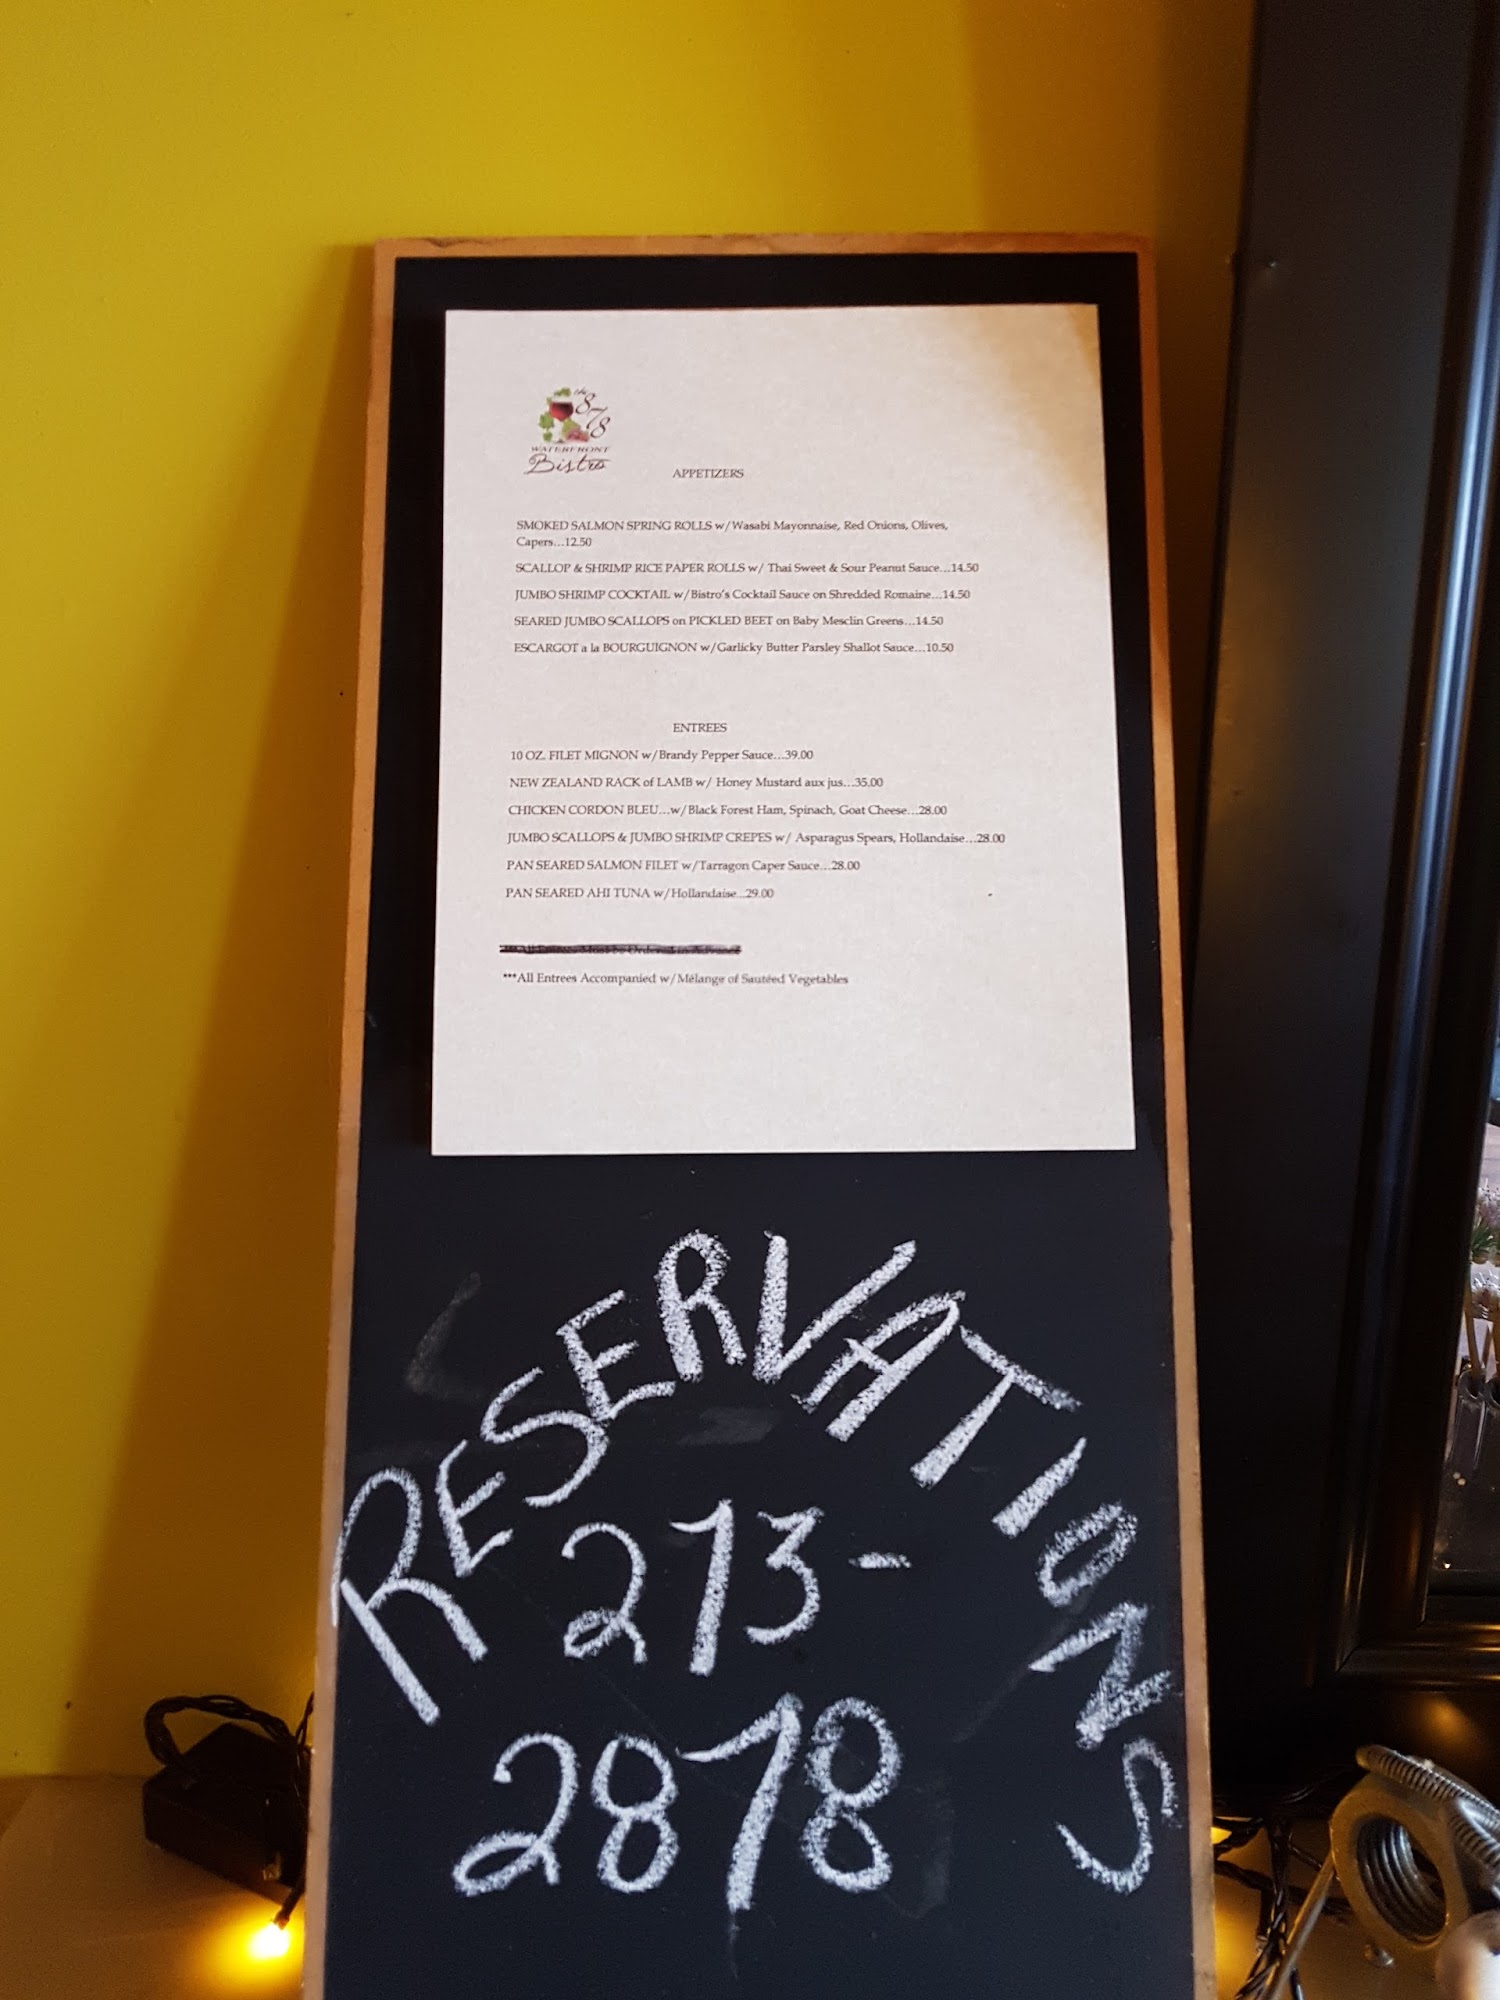 the
878
WATERFRONT
Bistro
APPETIZERS
SMOKED SALMON SPRING ROLLS w/Wasabi Mayonnaise, Red Onions, Olives,
Capers...12.50
SCALLOP & SHRIMP RICE PAPER ROLLS w/ Thai Sweet & Sour Peanut Sauce...14.50
JUMBO SHRIMP COCKTAIL w/Bistro's Cocktail Sauce on Shredded Romaine...14.50
SEARED JUMBO SCALLOPS on PICKLED BEET on Baby Mesclin Greens...14.50
ESCARGOT a la BOURGUIGNON w/Garlicky Butter Parsley Shallot Sauce...10.50
ENTREES
10 OZ. FILET MIGNON w/Brandy Pepper Sauce...39.00
NEW ZEALAND RACK of LAMB w/ Honey Mustard aux jus...35.00
CHICKEN CORDON BLEU...w/Black Forest Ham, Spinach, Goat Cheese...28.00
JUMBO SCALLOPS & JUMBO SHRIMP CREPES w/ Asparagus Spears, Hollandaise...28.00
PAN SEARED SALMON FILET w/Tarragon Caper Sauce...28.00
PAN SEARED AHI TUNA w/Hollandaise...29.00
***All Entrees Must be Ordered in Advance
***All Entrees Accompanied w/Mélange of Sautéed Vegetables
RESERVATIONS
273-
2878